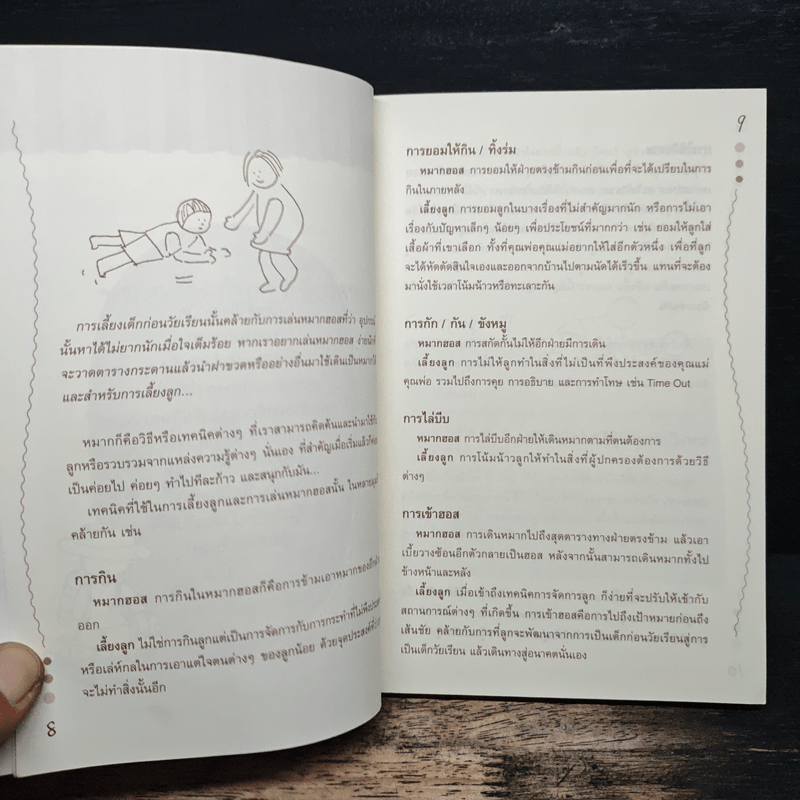 การเลี้ยงเด็กก่อนวัยเรียนนั้นคล้ายกับการเล่นหมากฮอสที่ว่า
นั้นหาได้ไม่ยากนักเมื่อใจเต็มร้อย หากเราอยากเล่นหมากฮอส
จะวาดตารางกระดานแล้วนำฝาขวดหรืออย่างอื่นมาใช้เดินเป็นหมากได้
และสำหรับการเลี้ยงลูก...
หมากก็คือวิธีหรือเทคนิคต่างๆ ที่เราสามารถคิดค้นและนำมาใช้
ลูกหรือรวบรวมจากแหล่งความรู้ต่างๆ นั่นเอง ที่สำคัญเมื่อเริ่มแล้วก็
เป็นค่อยไป ค่อยๆ ทำไปทีละก้าว และสนุกกับมัน...
เทคนิคที่ใช้ในการเลี้ยงลูกและการเล่นหมากฮอสนั้น
คล้ายกัน เช่น
การกิน
หมากฮอส การกินในหมากฮอสก็คือการข้ามเอาหมากของ
ออก
เลี้ยงลูก ไม่ใช่การกินลูกแต่เป็นการจัดการกับการกระทำที่ไม่
หรือเล่ห์กลในการเอาแต่ใจตนต่างๆ ของลูกน้อย ด้วยจุดประสงค์
จะไม่ทำสิ่งนั้นอีก
8
9
การยอมให้กิน / ทิ้งร่ม
หมากฮอส การยอมให้ฝ่ายตรงข้ามกินก่อนเพื่อที่จะได้เปรียบในการ
กินในภายหลัง
เลี้ยงลูก การยอมลูกในบางเรื่องที่ไม่สำคัญมากนัก หรือการไม่เอา
เรื่องกับปัญหาเล็กๆ น้อยๆ เพื่อประโยชน์ที่มากกว่า เช่น ยอมให้ลูกใส่
เสื้อผ้าที่เขาเลือก ทั้งที่คุณพ่อคุณแม่อยากให้ใส่อีกตัวหนึ่ง เพื่อที่ลูก
จะได้หัดตัดสินใจเองและออกจากบ้านไปตามนัดได้เร็วขึ้น แทนที่จะต้อง
มานั่งใช้เวลาโน้มน้าวหรือทะเลาะกัน
การกัก / กัน / ขังหมู
หมากฮอส การสกัดกั้นไม่ให้อีกฝ่ายมีการเดิน
เลี้ยงลูก การไม่ให้ลูกทำในสิ่งที่ไม่เป็นที่พึงประสงค์ของคุณแม่
คุณพ่อ รวมไปถึงการคุย การอธิบาย และการทำโทษ เช่น Time Out
การไล่บีบ
หมากฮอส การไล่บีบอีกฝ่ายให้เดินหมากตามที่ตนต้องการ
เลี้ยงลูก การโน้มน้าวลูกให้ทำในสิ่งที่ผู้ปกครองต้องการด้วยวิธี
ต่างๆ
การเข้าฮอส
หมากฮอส การเดินหมากไปถึงสุดตารางทางฝ่ายตรงข้าม แล้วเอา
เบี้ยวางซ้อนอีกตัวกลายเป็นฮอส หลังจากนั้นสามารถเดินหมากทั้งไป
ข้างหน้าและหลัง
เลี้ยงลูก เมื่อเข้าถึงเทคนิคการจัดการลูก ก็ง่ายที่จะปรับให้เข้ากับ
สถานการณ์ต่างๆ ที่เกิดขึ้น การเข้าฮอสคือการไปถึงเป้าหมายก่อนถึง
เส้นชัย คล้ายกับการที่ลูกจะพัฒนาจากการเป็นเด็กก่อนวัยเรียนสู่การ
เป็นเด็กวัยเรียน แล้วเดินทางสู่อนาคตนั่นเอง